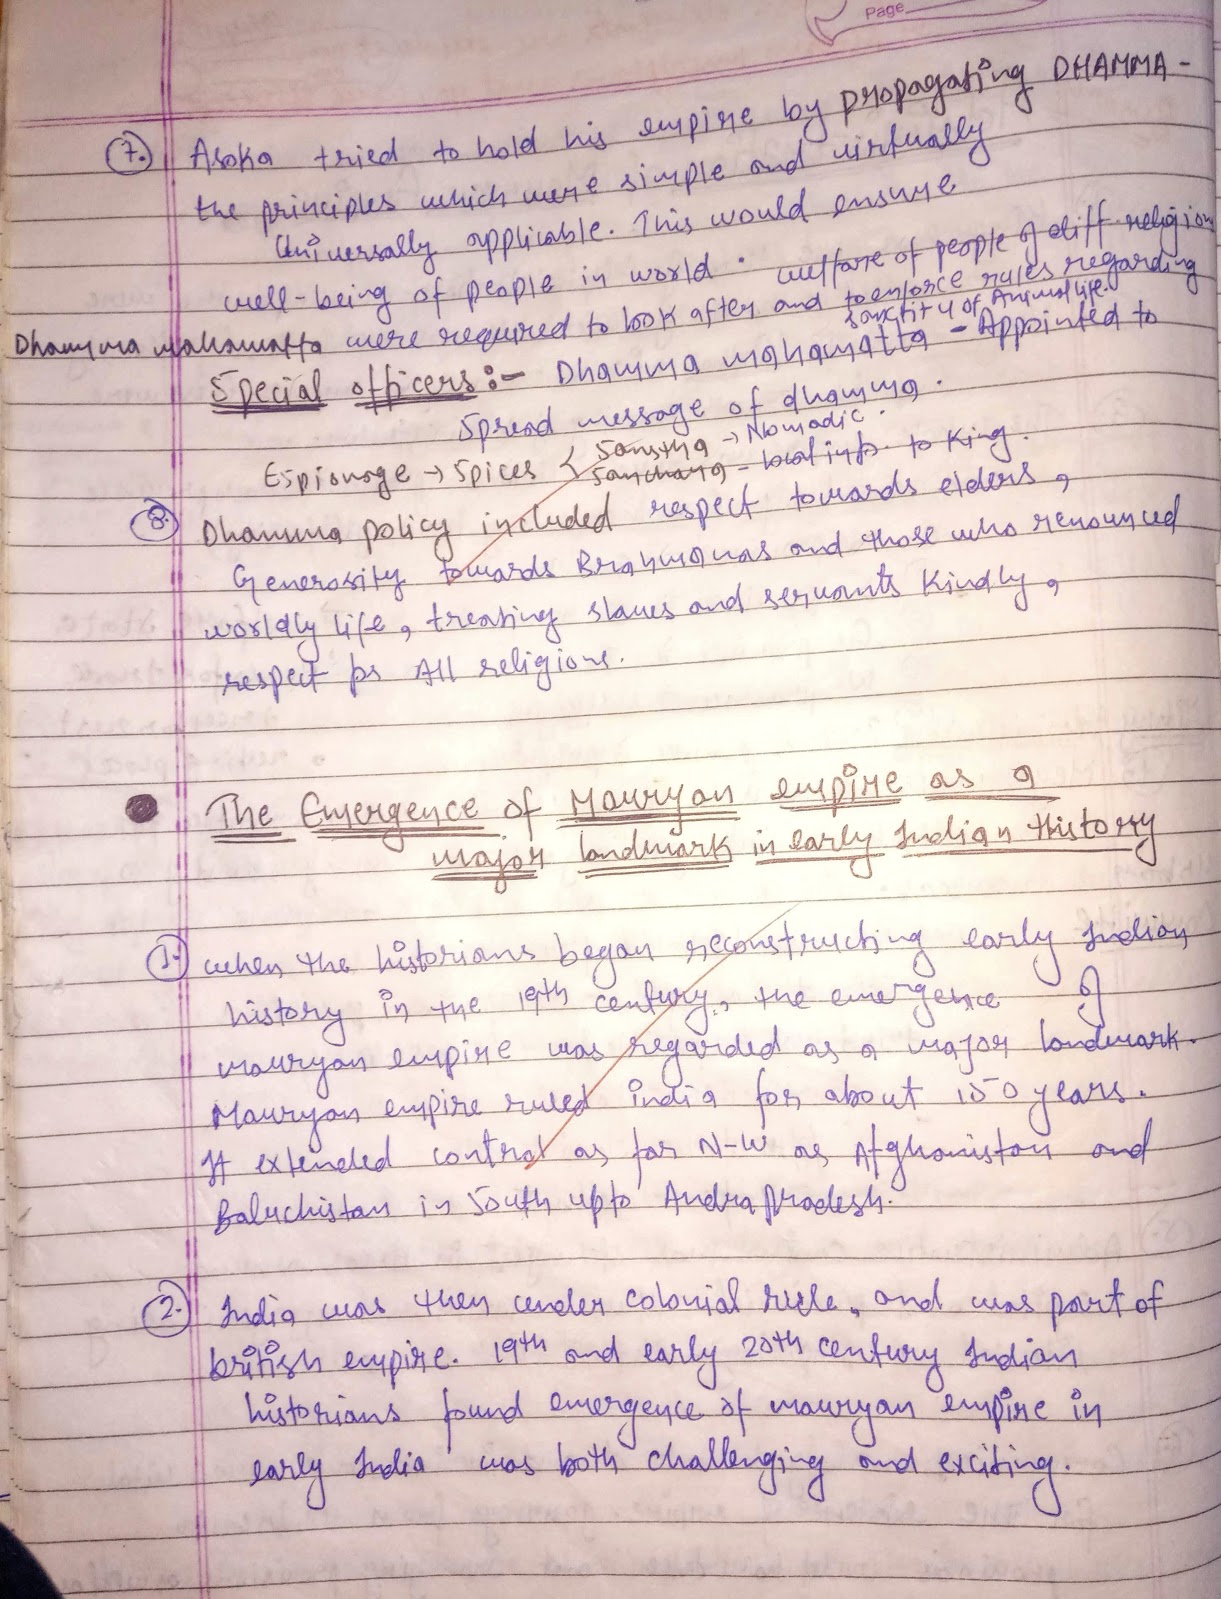 Page
7. Asoka tried to hold his empire by propagating DHAMMA -
the principles which were simple and virtually
Universally applicable. This would ensure
well-being of people in world. welfare of people of diff religion
Dhamma mahamatta were required to look after and to enforce rules regarding
sanctity of Animal life.
Special officers :- Dhamma mahamatta - Appointed to
Spread message of dhamma.
Espionage → Spices < Sanstha → Nomadic.
Sanchara - local info. to King.
8. Dhamma policy included respect towards elders,
Generosity towards Brahmanas and those who renounced
worldly life, treating slaves and servants Kindly,
respect for All religions.
• The Emergence of Mauryan empire as a
major landmark in early Indian History
1. when the historians began reconstructing early Indian
history in the 19th century, the emergence of
mauryan empire was regarded as a major landmark.
Mauryan empire ruled india for about 150 years.
It extended control as far N-W as Afghanistan and
Baluchistan in South upto Andra pradesh.
2. India was then under colonial rule, and was part of
british empire. 19th and early 20th century Indian
historians found emergence of mauryan empire in
early India was both challenging and exciting.